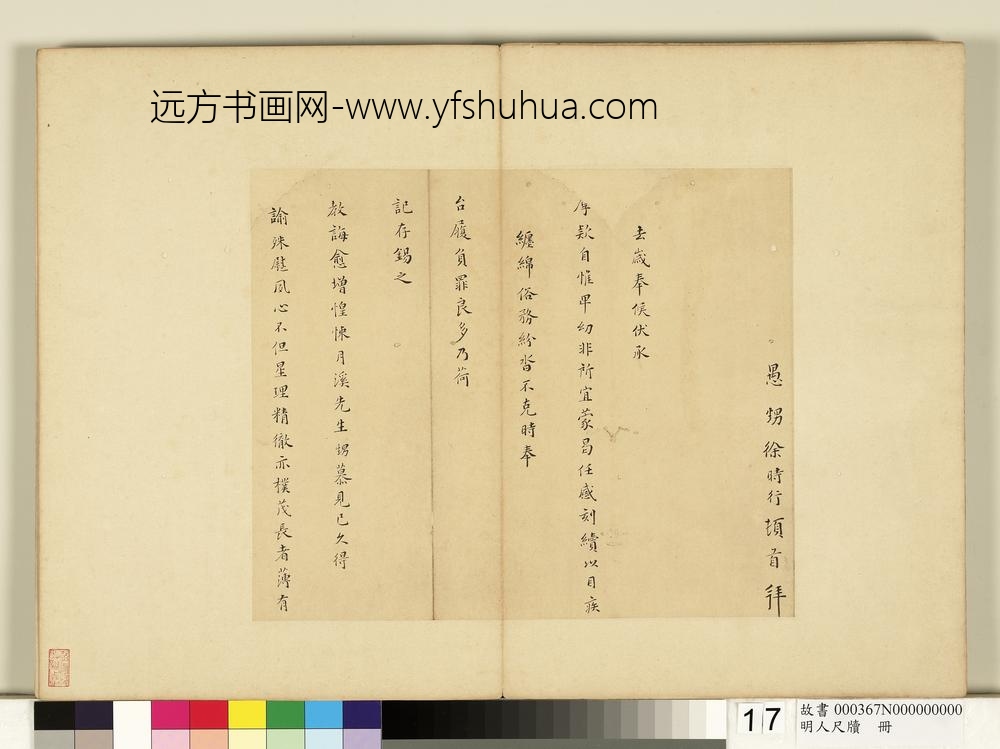 远方书画网-www.yfshuhua.com
愚甥徐時行頓首拜
去歲奉侯伏承
厚款自惟卑幼非所宜蒙曷任感刻續以目疾
纏綿俗務紛沓不克時奉
台履負罪良多乃荷
記存錫之
教誨愈增惶悚月溪先生甥慕見已久得
諭殊慰夙心不但星理精徹亦樸茂長者薄有
17
故書 000367N000000000
明人尺牘 冊